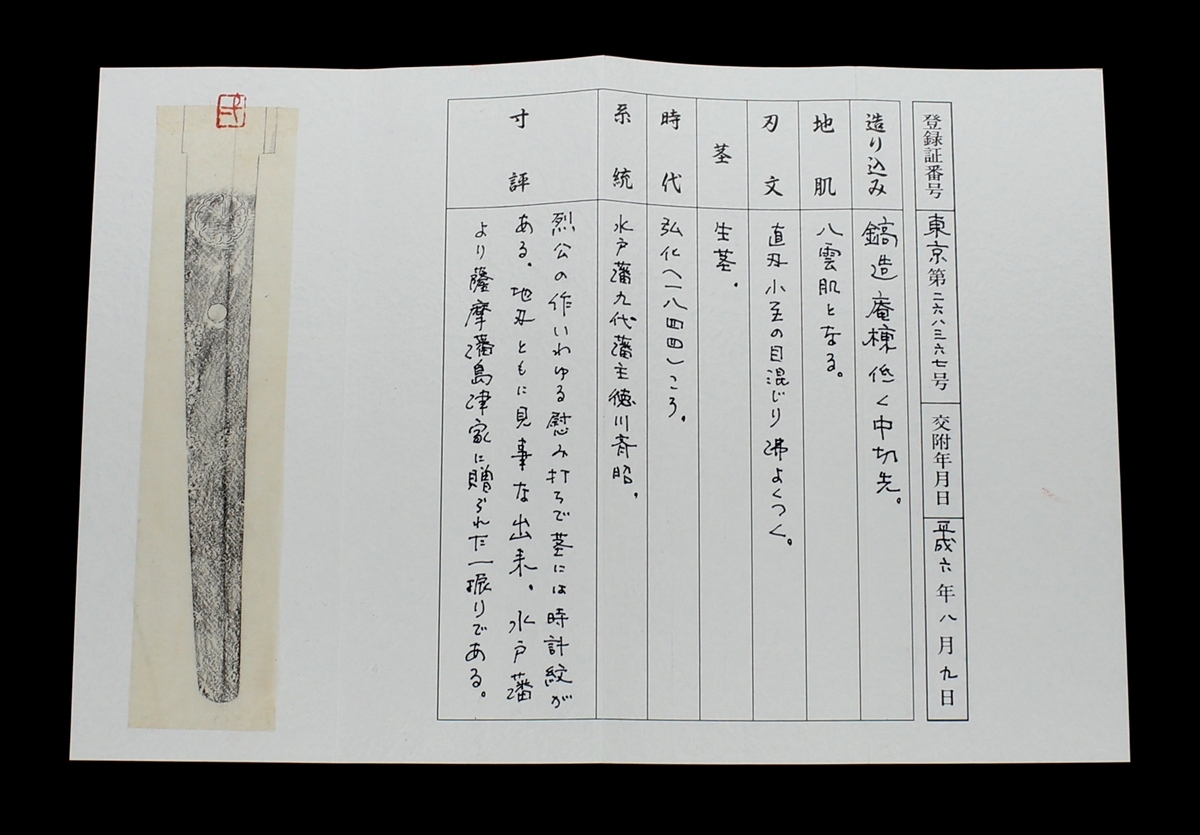 登録証番号 東京第二六八三六七号 交附年月日 平成六年八月九日
造り込み 鎬造庵棟低く中切先。
地肌 八雲肌となる。
刃文 直刃小互の目混じり沸よくつく。
茎 生茎。
時代 弘化(一八四四)ころ。
系統 水戸藩九代藩主徳川斉昭。
寸評 烈公の作いわゆる慰み打ちで茎には時計紋が
ある。地刃ともに見事な出来。水戸藩
より薩摩藩島津家に贈られた一振りである。